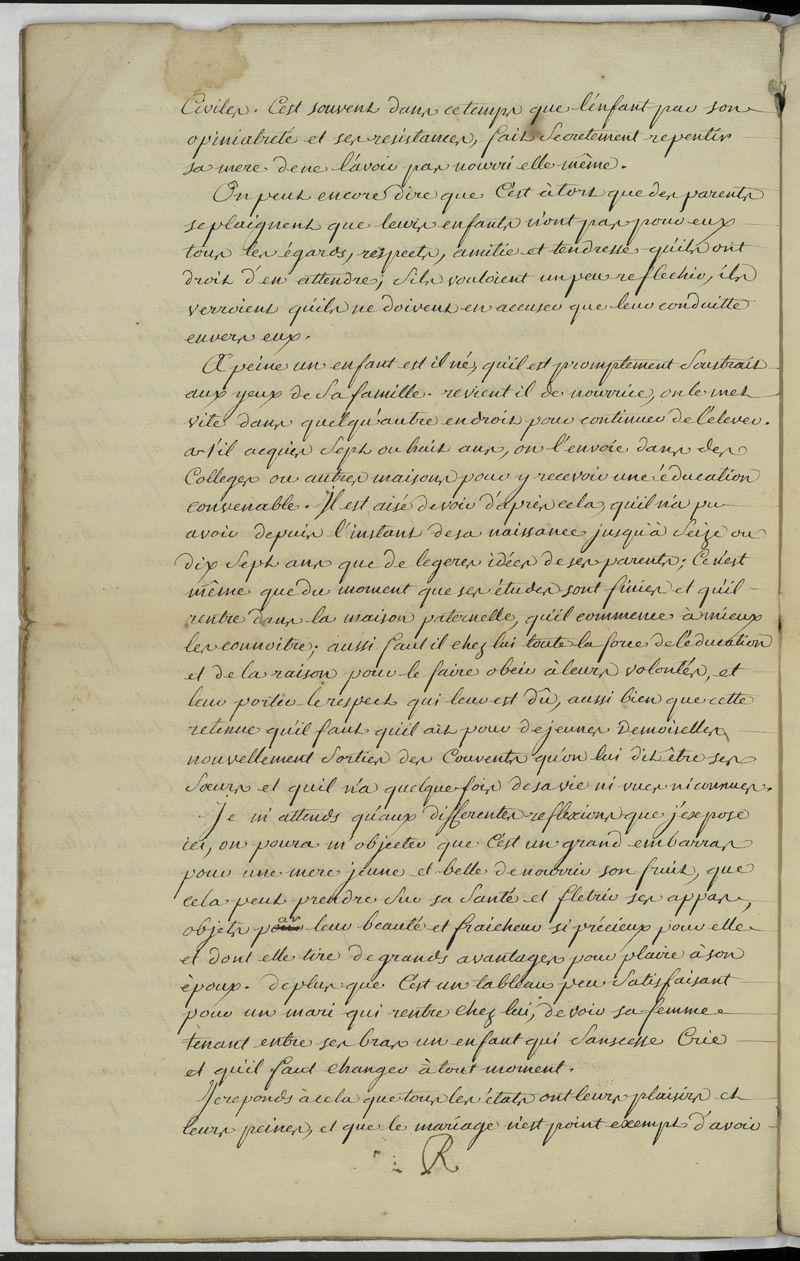 Civiles. C'est souvent dans ce temps que l'énfant par son
opiniatreté et ses resistances, fait Secretement repentir
sa mere de ne l'avoir pas nourri elle même.
On peut encore dire que C'est à tort que des parents
se plaignent que leurs enfants n'ont pas pour eux
tous les égards, respects, amitié et tendresse qu'ils ont
droit d'en attendre; s'ils vouloient un peu reflechir, ils
verroient qu'ils ne doivent en accuser que leur conduitte
envers eux.
A peine un enfant est il né, qu'il est promptement Soustrait
aux yeux de Sa famille. revient il de nourrice, on le met
vite dans quelqu'autre endroit pour continuer de l'élever.
a-t'il acquis Sept ou huit ans, on l'envoie dans des
Colleges ou autres maisons pour y recevoir une éducation
convenable. Il est aisé de voir d'après cela, qu'il n'a pu
avoir depuis l'instant de sa naissance jusqu'à Seize ou
dix Sept ans que de legeres idées de ses parents; Ce n'est
même que du moment que ses études sont finies et qu'il
rentre dans la maison paternelle, qu'il commence à mieux
les connoitre; aussi faut il chez lui toute la force de l'éducation
et de la raison pour le faire obeir à leurs volontés, et
leur porter le respect qui leur est dû, aussi bien que cette
retenue qu'il faut qu'il ait pour de jeunes Demoiselles
nouvellement Sorties des Couvents qu'on lui dit être ses
Sœurs et qu'il n'a quelque fois de sa vie ni vues ni connues.
Je m'attends qu'aux differentes reflexions que j'expose
ici, on poura m'objecter que C'est un grand embarras
pour une mere jeune et belle de nourrir son fruit, que
cela peut prendre Sur sa Santé et fletrir ses appas,
objets par leur beauté et fraicheur si précieux pour elle
et dont elle tire de grands avantages pour plaire à son
époux. de plus que C'est un tableau peu Satisfaisant
pour un mari qui rentre chez lui, de voir sa femme
tenant entre ses bras un enfant qui Sans cesse Crie
et qu'il faut changer à tout moment.
Je reponds à cela que tous les états ont leurs plaisirs et
leurs peines, et que le mariage n'est point exempt d'avoir
R